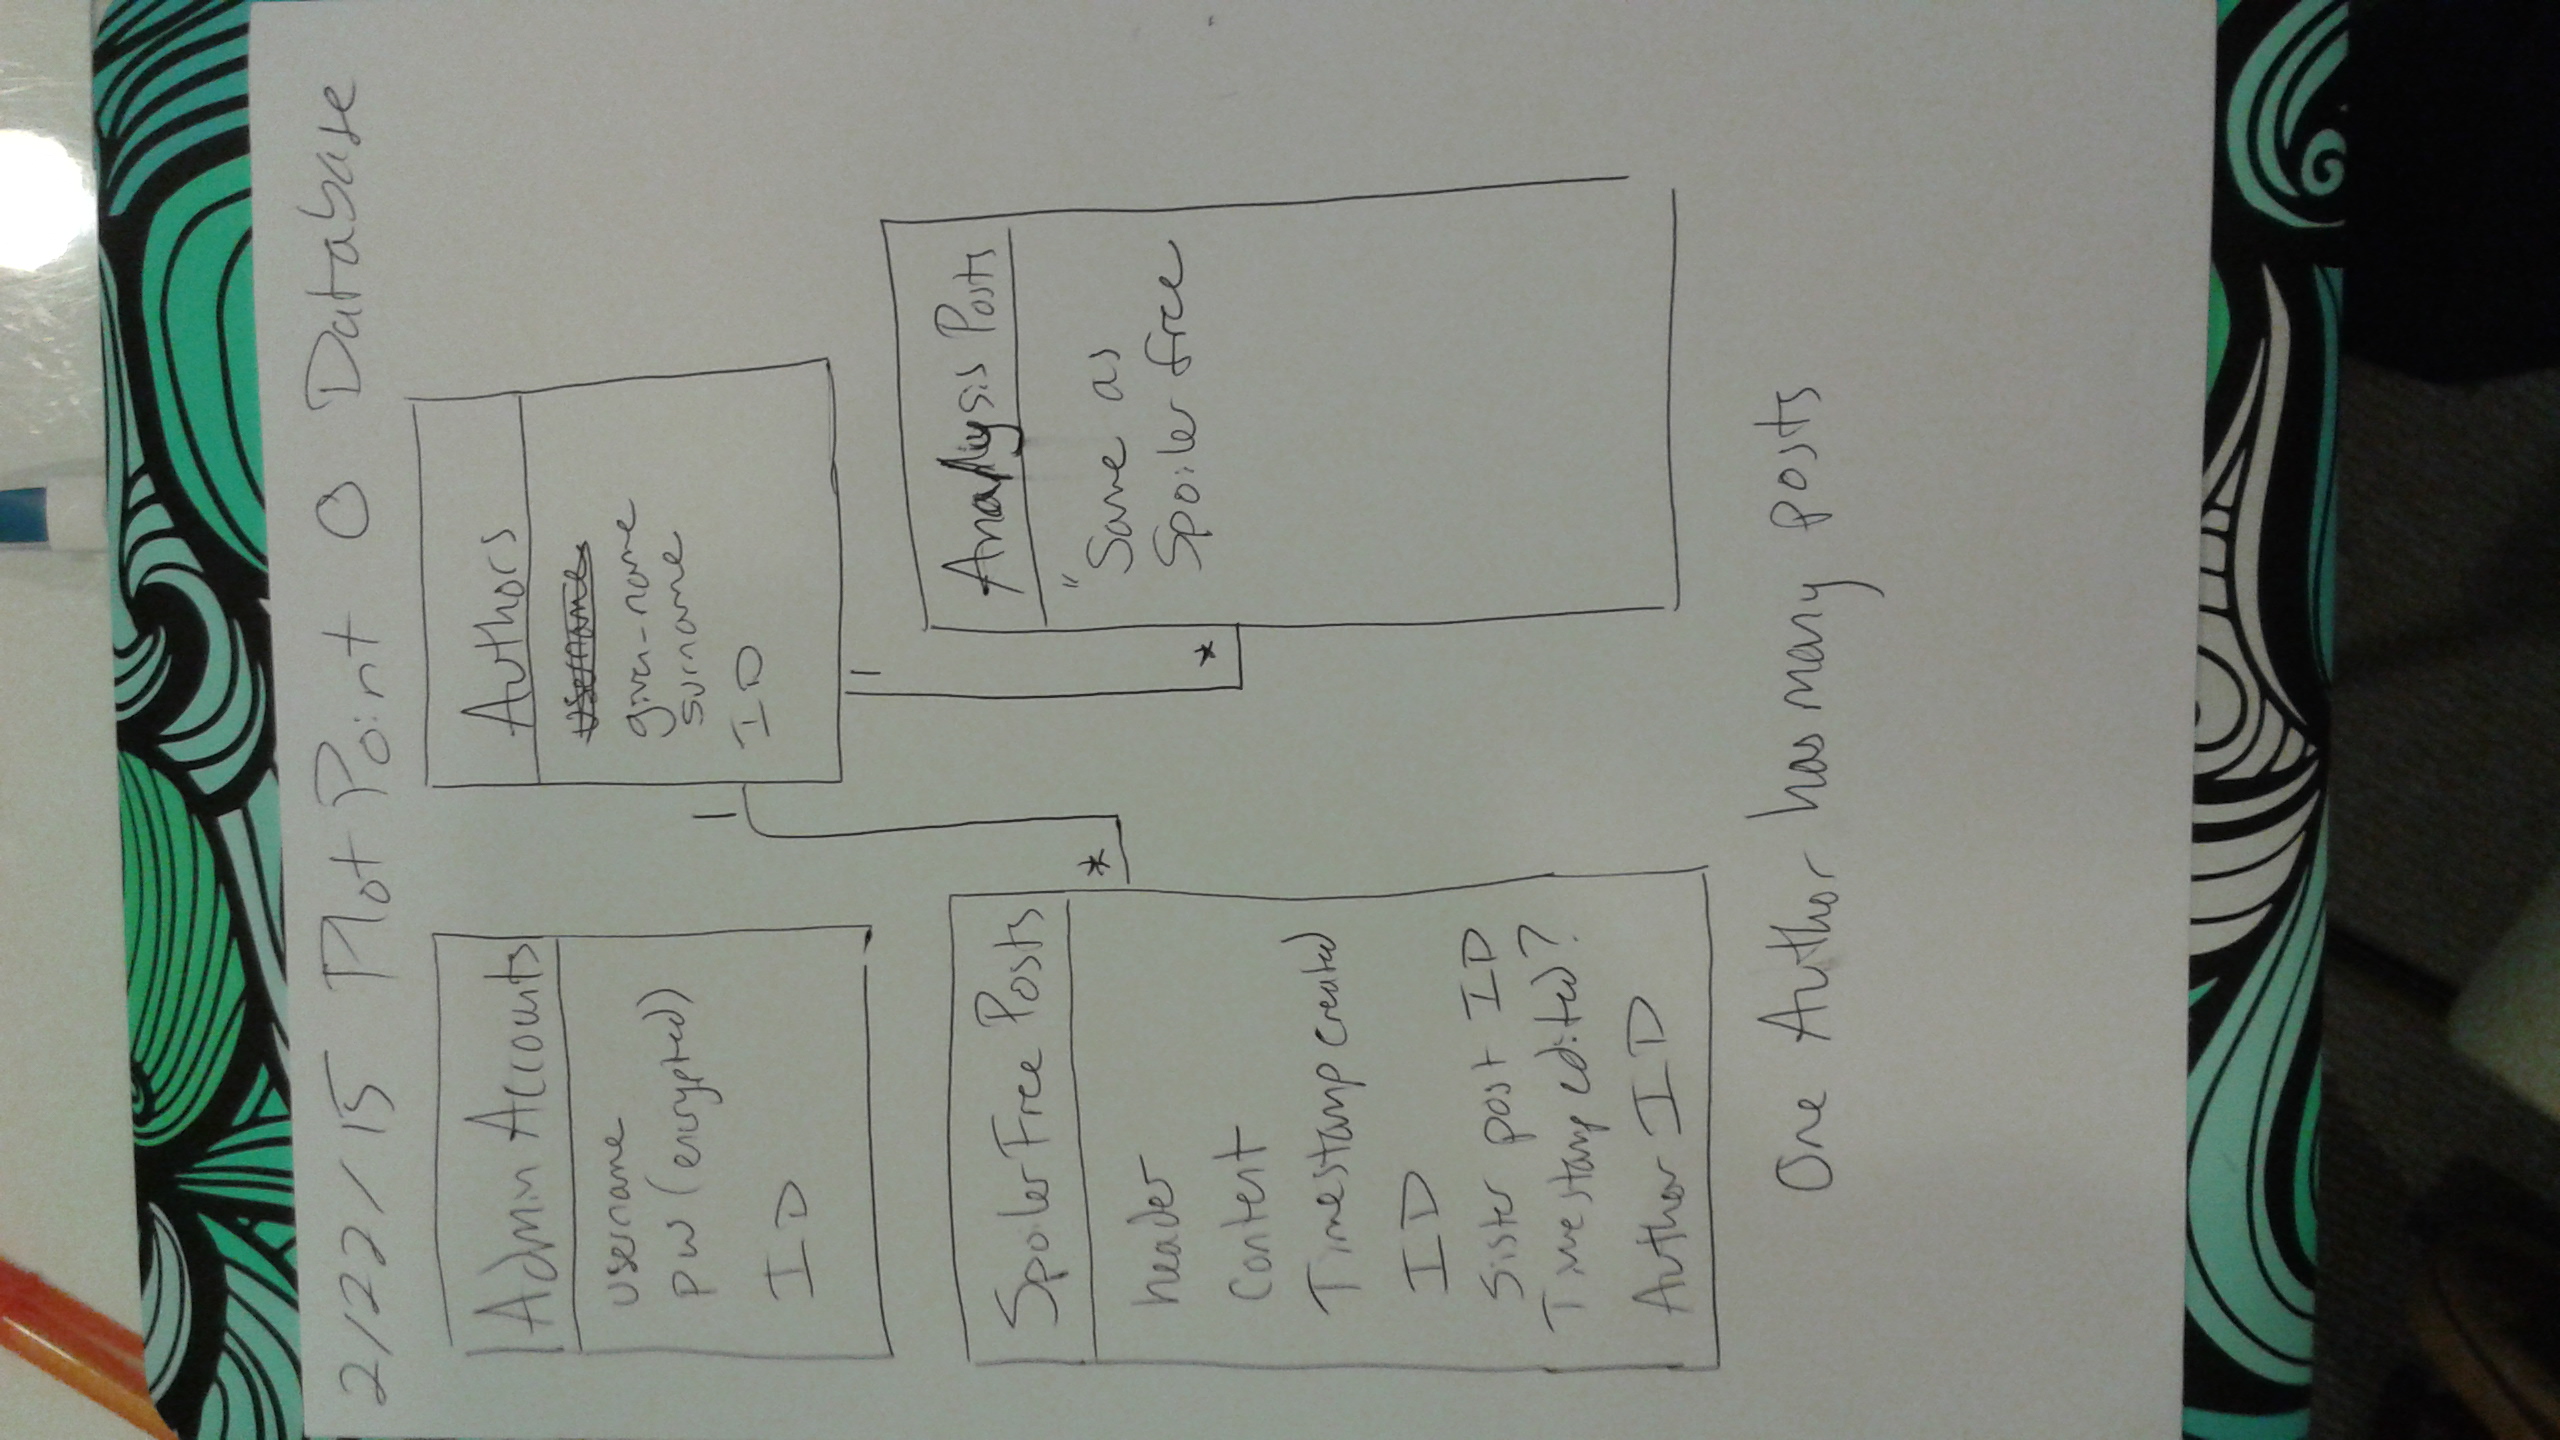 2/22/15 Plot Point O Database
Admin Accounts
username
pw (encrypted)
ID
Authors
username
given-name
surname
ID
1
*
1
*
Spoiler Free Posts
header
Content
Timestamp created
ID
Sister post ID
Timestamp edited?
Author ID
Analysis Posts
"Same as
Spoiler free
One Author has many posts